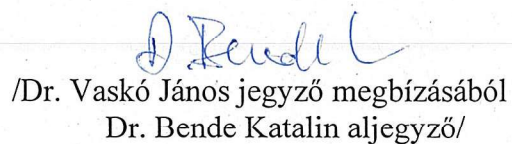 D. Bende K
/Dr. Vaskó János jegyző megbízásából
Dr. Bende Katalin aljegyző/